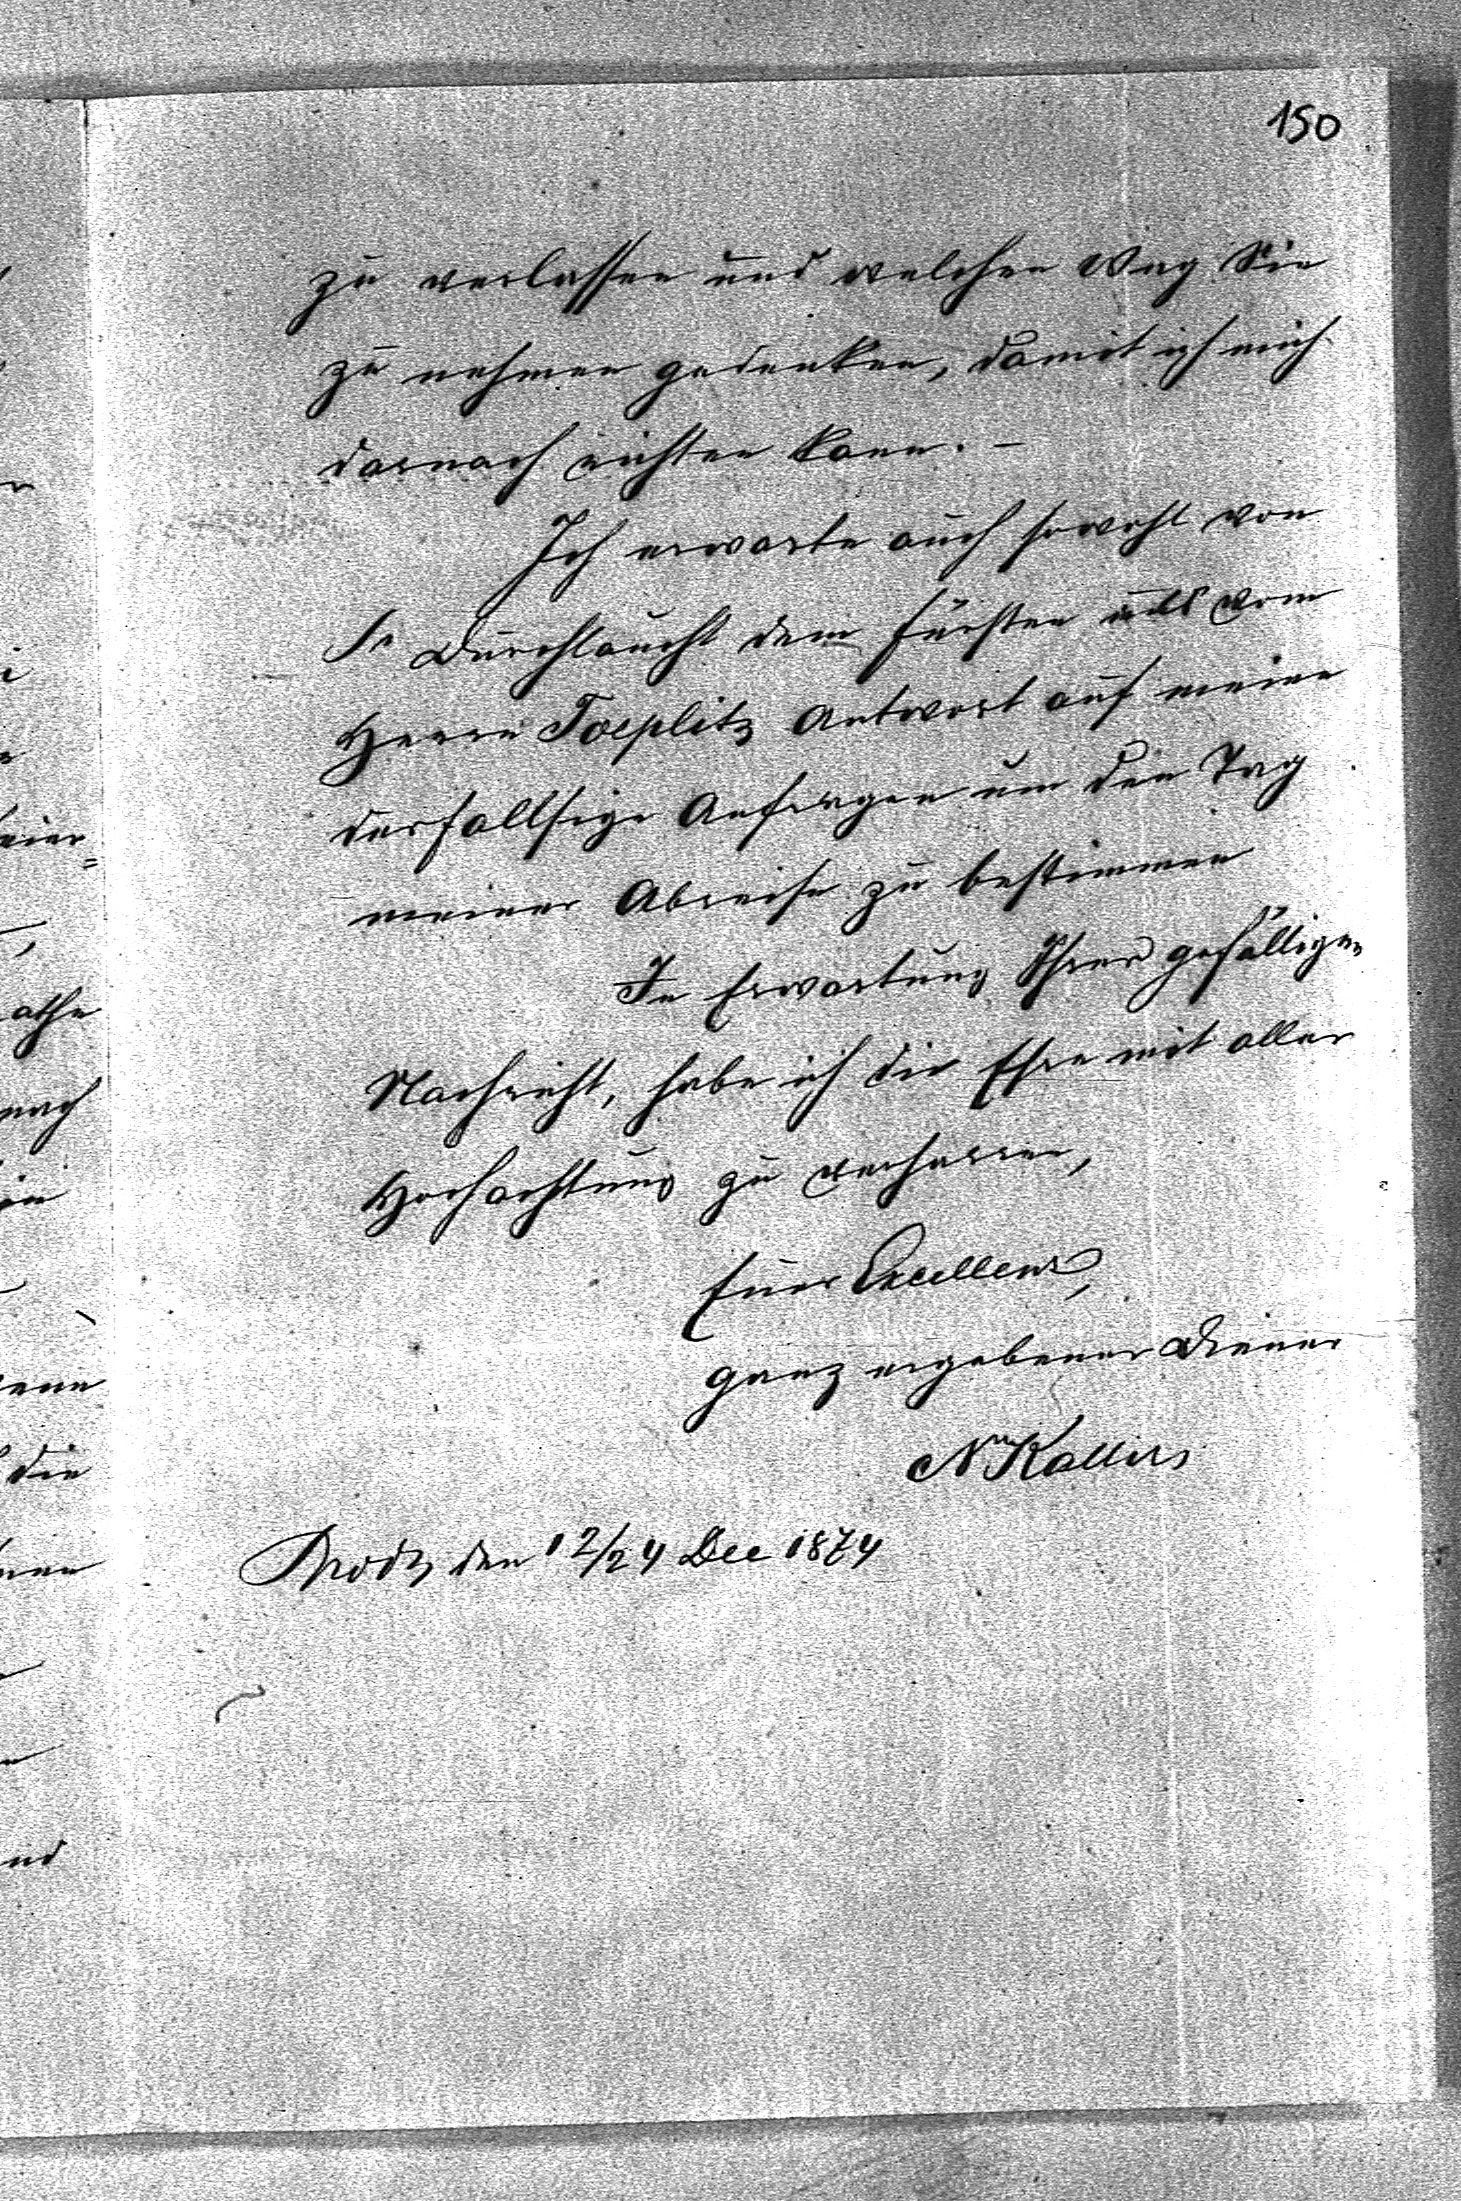 150
zu verlassen und welchen Weg Sie
zu nehmen gedenken, damit ich mich
darnach richten kann. –
Ich erwarte auch sowohl von
Sr Durchlaucht dem Fürsten als vom
Herrn Toeplitz Antwort auf meine
desfallsige Anfragen um den Tag
meiner Abreise zu bestimmen
In Erwartung Ihrer gefälligen
Nachricht, habe ich die Ehre mit aller
Hochachtung zu verharren,
Euer Excellenz,
ganz ergebener Diener
Nm Kallir
Brody den 12/24 Dec 1874